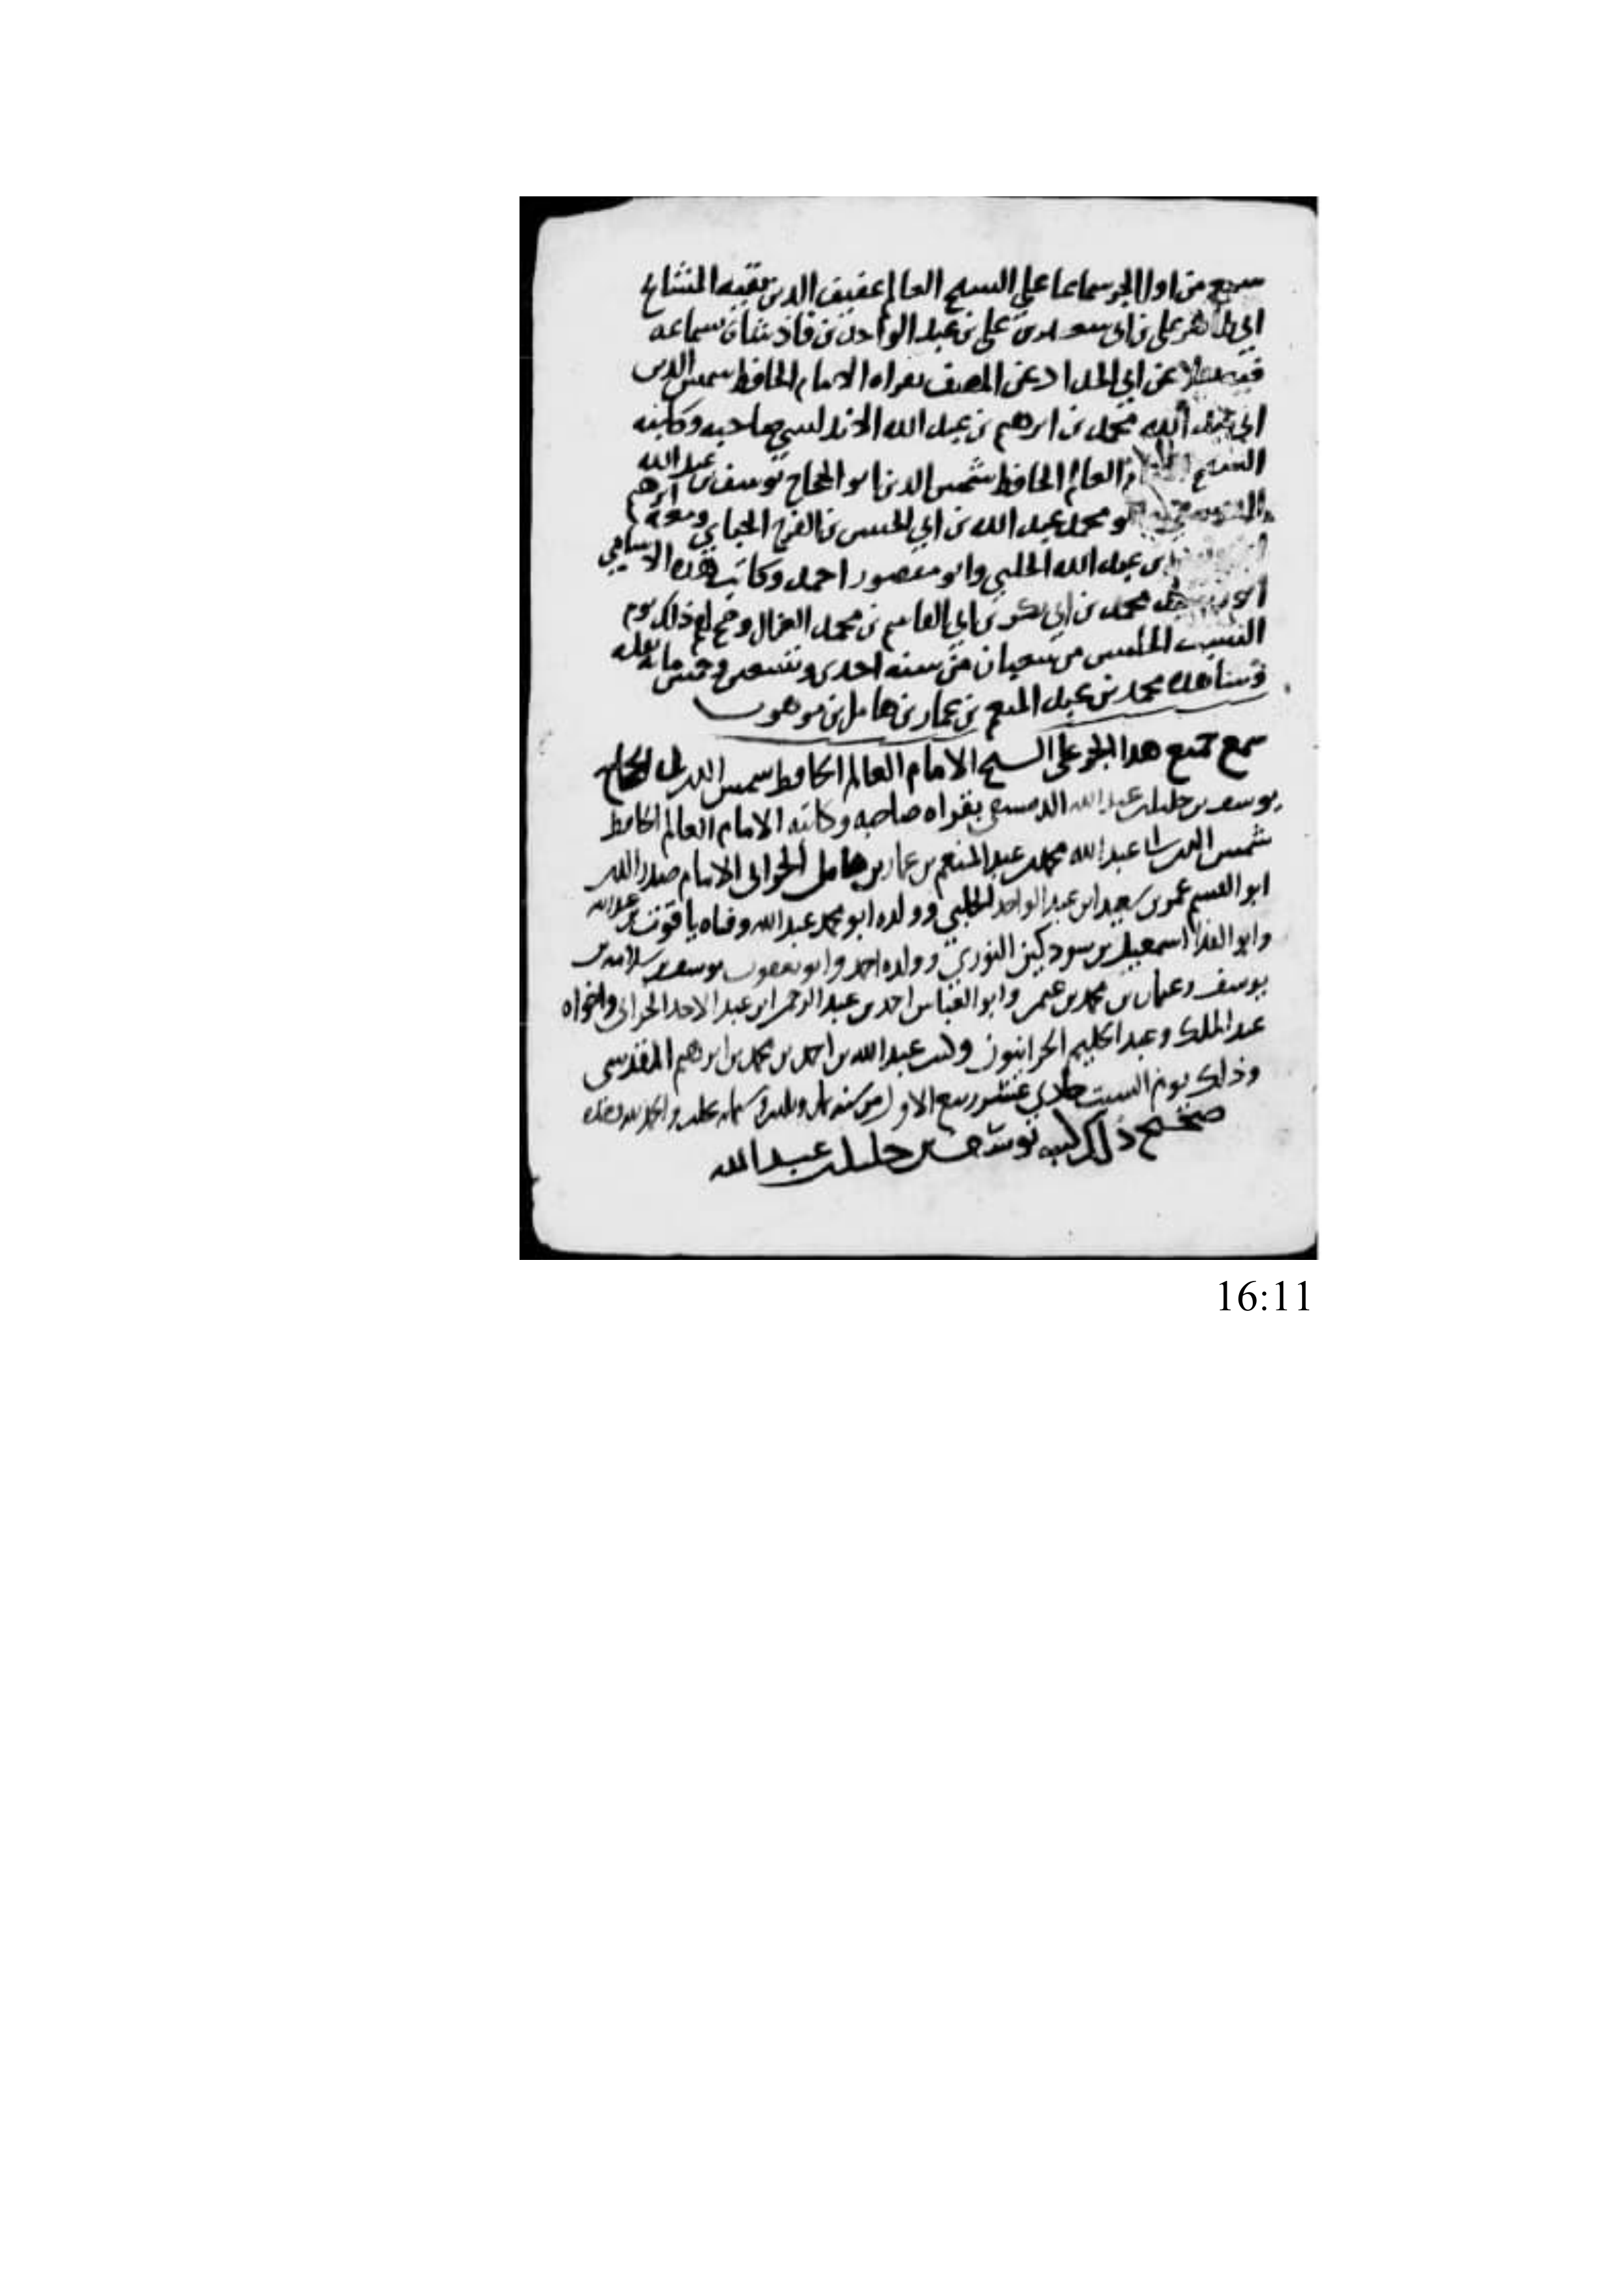 سمع من اول الجز سماعا علي الشيخ العالم عفيف الدين بقية المشايخ
ابي طاهر علي بن ابي سعد بن علي بن عبد الواحد بن فاذشاه سماعه
فيه عن ابي الحداد عن المصنف بقراه الامام الحافظ شمس الدين
ابي عبد الله محمد بن ابرهيم بن عبد الله الاندلسي صاحبه وكاتبه
الشيخ العالم الحافظ شمس الدين ابو الحجاج يوسف بن عبد الله
ابو محمد عبد الله بن ابي الحسن بن الفرج الجباي ومعه ابرهيم
بن عبد الله الحلبي وابو منصور احمد وكاتب هذه الاسامي
محمد بن ابي بكر بن ابي القاسم بن محمد الغزال وصح لهم ذلك يوم
السبت الخامس من شعبان من سنه احدى وتسعين وخمس مايه نقله
محمد بن عبد المنعم بن عمار بن هامل بن موهوب
سمع جميع هدا الجز على الشيخ الامام العالم الحافظ شمس الدين ابي الحجاج
يوسف بن خليل بن عبد الله الدمشقي بقراه صاحبه وكاتبه الامام العالم الحافظ
شمس الدين ابي عبد الله محمد بن عبد المنعم بن عمار بن هامل الحراني الامام صدر الدين
ابو القسم عمر بن سعيد ابن عبد الواحد الحلبي وولده ابو محمد عبد الله وفتاه ياقوت بن عبد الله
وابو الفدا اسمعيل بن سودكين النوري وولده احمد وابو يعقوب يوسف بن سلامه بن
يوسف وعثمان بن محمد بن عمر وابو العباس احمد بن عبد الرحمن ابن عبد الاحد الحراني واخواه
عبد الملك وعبد الحليم الحرانيون وكتب عبد الله بن احمد بن محمد بن ابرهيم المقدسي
وذلك يوم السبت حادي عشر ربيع الاول من سنه ثمان وثلاثين وستمايه بحلب والحمد لله وحده
صحيح ذلك كتبه يوسف بن خليل بن عبد الله
16:11